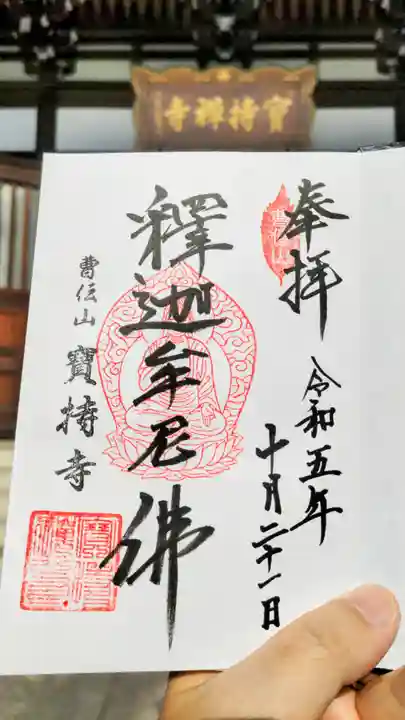 寺禅持寳
奉拝
曹伝山
令和五年
十月二十一日
釋迦牟尼佛
曹伝山
寳持寺